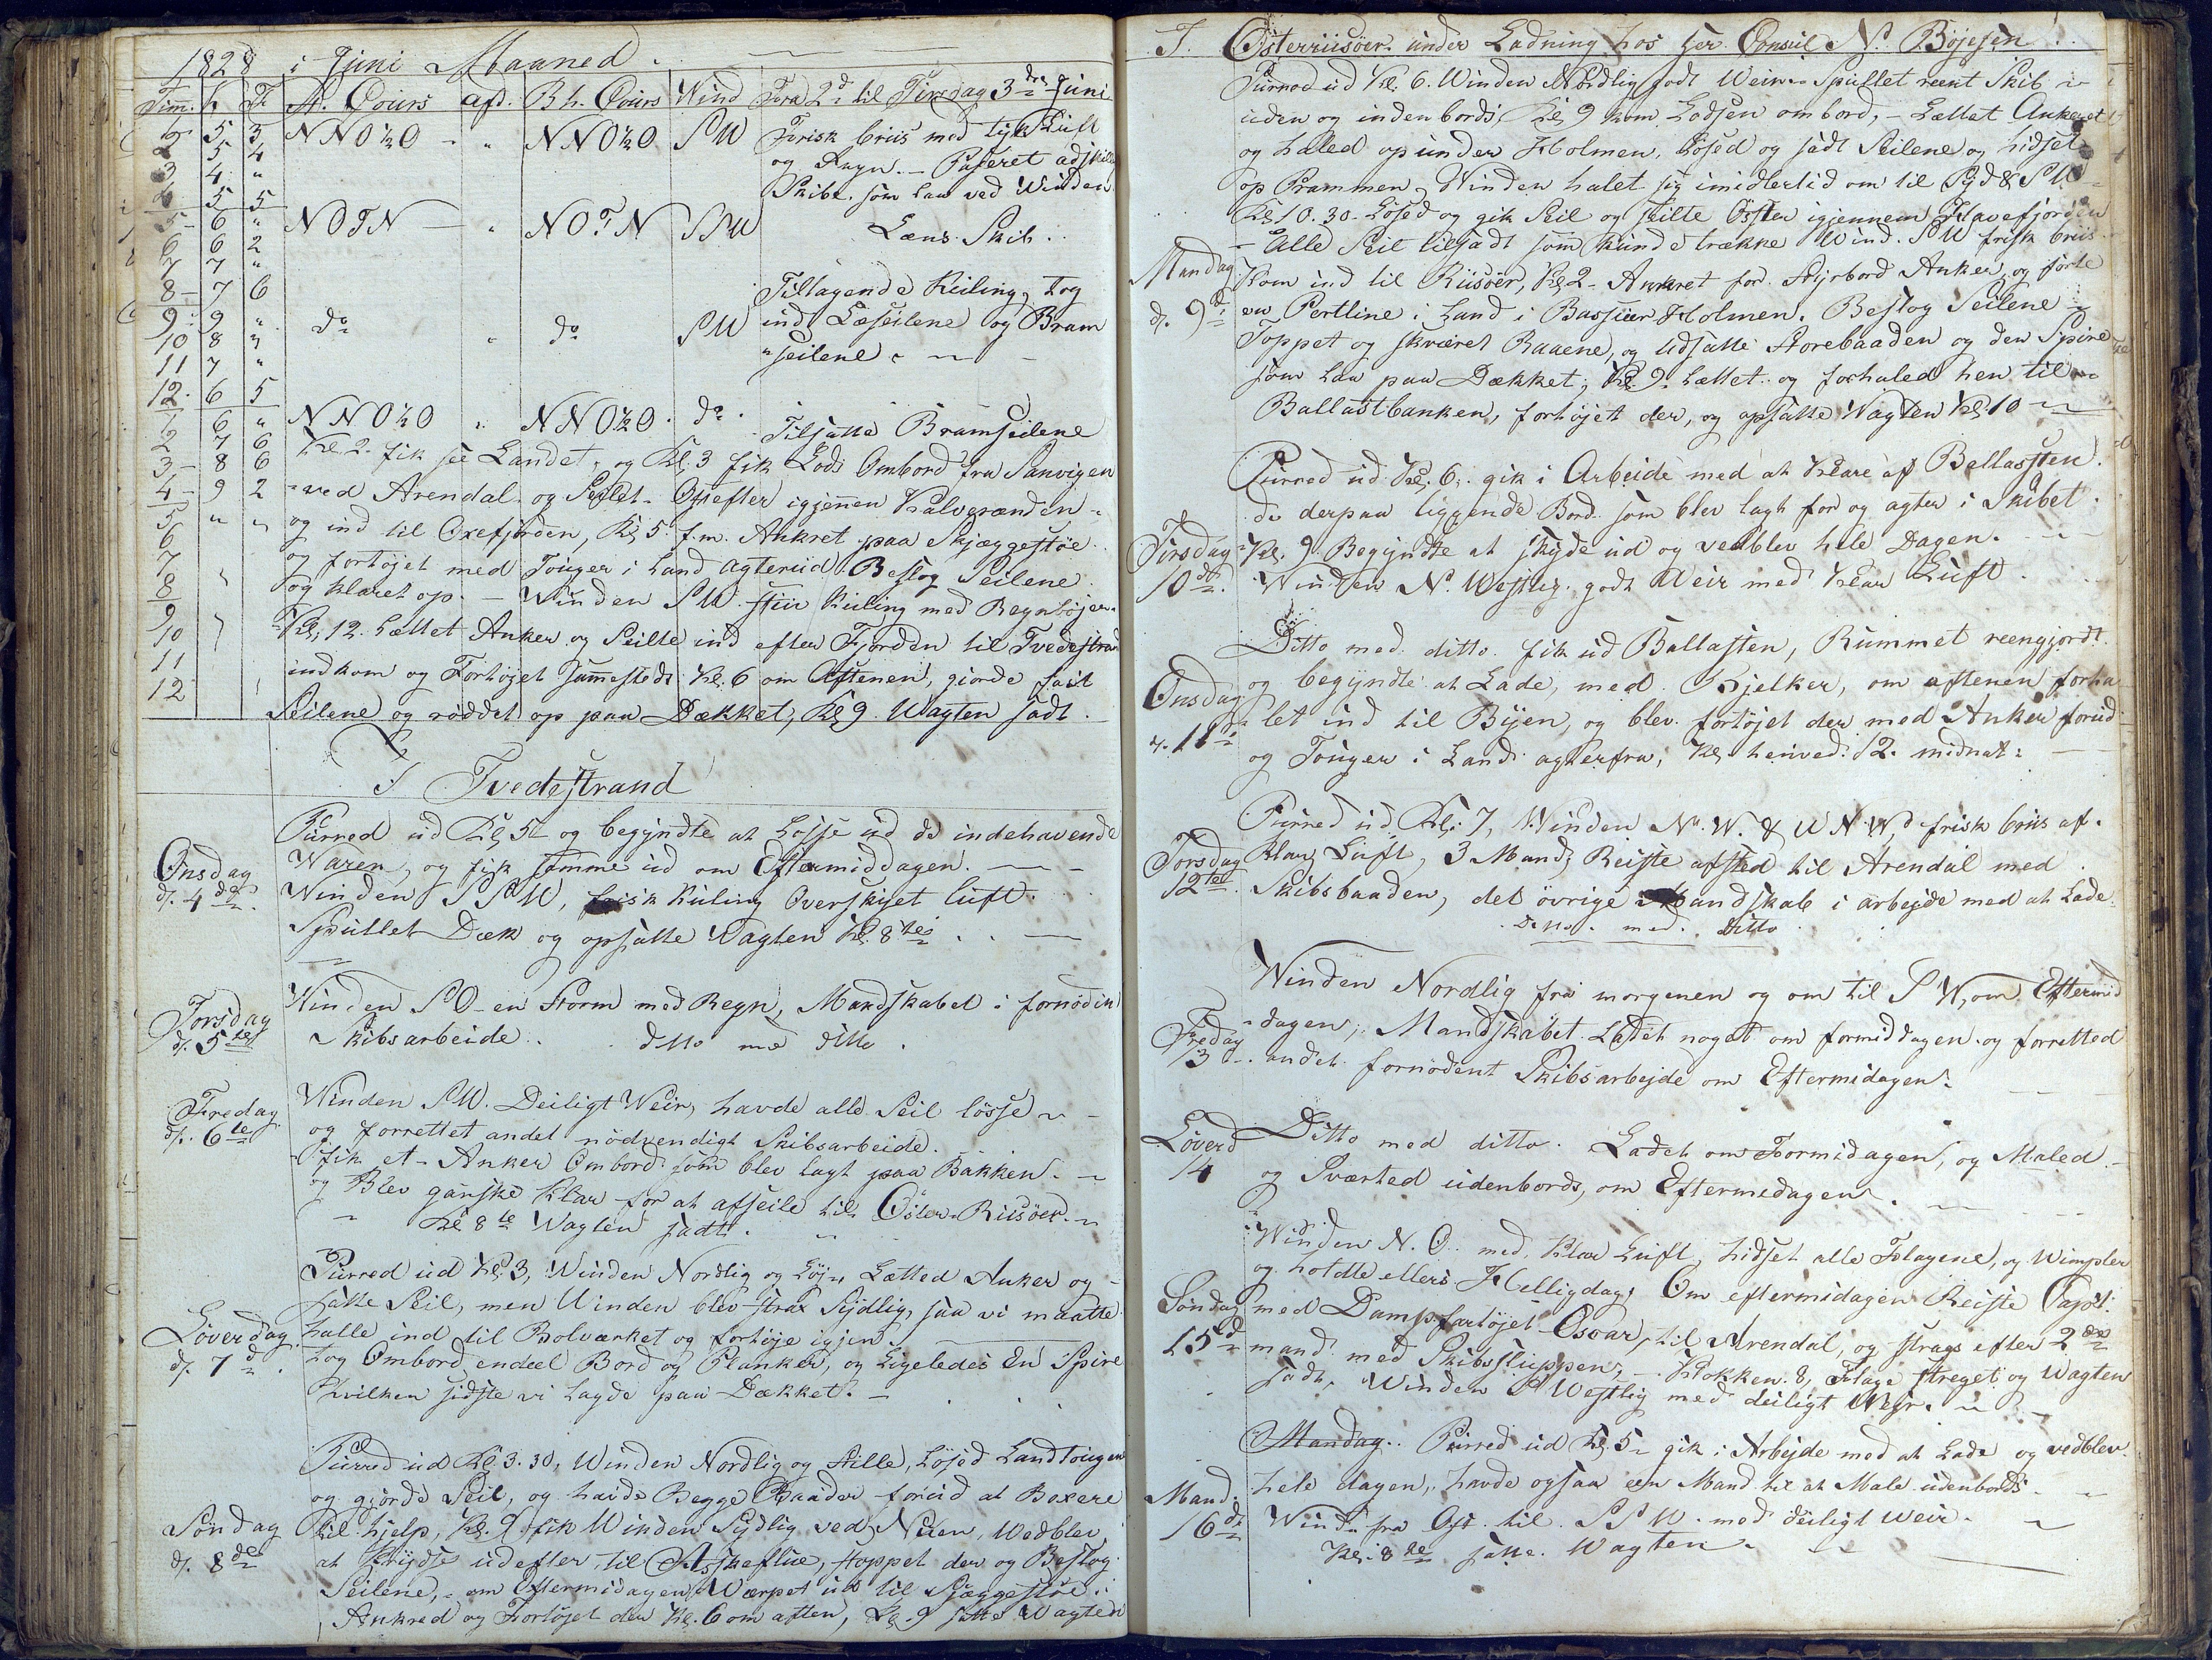 1828 i Juni Maaned.
Tim. K F St. Cours afd. Bh. Cours Wind Fra 2d til Tirsdag 3die Juni
1 5 3 NNO½O - " NNO½O SW Frisk briis med tyk Luft
2 5 4 og Regn. - Paseret adskille
3 4 " Skibe, som laa ved Winden
4 5 5
5 6 " NOTN - " NOTN SSW Læns Skib.
6 6 2
7 7 "
8 7 6 Tiltagende Kuling, tog
9 9 " do " do SW ind Læseilene og Bram
10 8 " seilene
11 7 "
12 6 5
1 6 " NNO½O " NNO½O do Tilsatte Bramseilene
2 7 6 Kl. 2 fik see Landet, og Kl. 3 fik Lods Ombord fra Sanvigen
3 8 6
4 9 2 ved Arendal og Seilet Østefter igjenen Kalvesunden
5 " " og ind til Oxefjorden, Kl. 5 f.m. Ankret paa Skjæggestöe
6
7 og fortøjet med Touger i Land agterud Beslog Seilene
8 og klaret op. - Winden SW stiv Kuling med Regnbøjer.
9
10 Kl. 12 Lættet Anker og Seilte ind efter Fjorden til Tvedestrand
11 indkom og Fortøjet sammesteds Kl. 6 om Aftenen, giorde fast
12 Seilene og röddet op paa Dækket, Kl 9 Wagten sadt.
I Tvedestrand
Purred ud Kl 5 og begyndte at Losse ud de indehavende
Onsdag Waren, og fik samme ud om Eftermiddagen.
d. 4de Winden SSW, frisk Kuling Overskyet luft.
Spullet Dæk og opsatte Wagten Kl. 8te
Winden SO en Storm med Regn, Mandskabet i fornødin
Torsdag
d. 5te Skibsarbeide. ditto me ditto.
Winden SW. Deiligt Weir, havde alle Seil lösse
Fredag
d. 6te og forrettet andet nödvendigt Skibsarbeide.
fik et Anker Ombord som blev lagt paa Bakken.
og Blev ganske Klar for at afseile til Öster-Riisöer.
Kl 8te Wagten sadt.
Purred ud Kl. 3, Winden Nordlig og Løj, Lætted Anker og
satte Seil, men Winden blev strax Sydlig, saa vi maatte
Löverdag halle ind til Bolværket og fortøje igjen
d. 7d. tog Ombord endeel Bord og Planker, og Ligeledes En Spire
hvilken sidste vi lagde paa Dækket.
Purred ud Kl 3.30, Winden Nordlig og Stille, Løsed Landtougen
og gjorde Seil, og havde Begge Baader forud at Boxere
Söndag til hjelp, Kl. 9 fik Winden Sydlig ved Næsen, Wedblev
d. 8de at Krydse udefter til Askeflue, stoppet der og Beslog
Seilene, om Eftermidagen Warpet ud til Skjæggestöe
Ankred og Fortøjet der Kl. 6 om aften, Kl. 9 satte Wagten
I. Österriisöer under Ladning hos Her Consul N. Bøjesen
Purred ud Kl. 6. Winden Nordlig godt Weir. Spullet reent Skib
uden og indenbords, Kl. 9 kom Lodsen ombord, - Lættet Ankeret
og haled op under Holmen. Løsed og sadt Seilene og hidset
op Prammen, Winden halet sig imidlertid om til Syd & SW
Kl 10.30 Løsed og gik Seil og stilte Öster igjennem Havefjorden
- Alle Seil tilsadt som kunde trække Wind. SW frisk briis
Mandag Kom ind til Riisöer, Kl 2 Ankret for Styrbord Anker, og förte
d. 9d en Pertline i Land i Bassuer Holmen. Beslog Seilene
Toppet og skværet Raaene, og Udsatte Storebaaden og den Spire
som laa paa Dækket, Kl. 9 Lættet og forhaled hen til
Ballastbanken, fortøjet der, og opsatte Wagten Kl. 10
Purred ud Kl. 6, gik i Arbeide med at Klare af Ballasten
de derpaa liggende Bord som blev lagt for og agter i Skibet.
Tirsdag Kl. 9 Begyndte at skyde ud og vedblev hele Dagen.
10de Winden N. Westlig godt Weir med klar Luft.
Ditto med ditto. fik ud Ballasten, Rummet reengjordt
Onsdag og begyndte at Lade, med Bjelker, om aftenen forha
d. 11te let ind til Byen, og blev fortøjet der med Anker forud
og Touger i Land agterfra, Kl. henved 12 midnat.
Purred ud Kl. 7, Winden N.W. & WNW frisk briis af
Torsdag Klar Luft, 3 Mand Reiste afsted til Arendal med
12te Skibsbaaden, det övrige Mandskab i arbejde med at Lade.
Ditto med Ditto
Winden Nordlig fra morgenen og om til SW, om Eftermid
Fredag dagen, Mandskabet Ladet noget om formiddagen og forretted
13 andet fornödent Skibsarbejde om Eftermidagen.
Löverd Ditto med ditto. Ladet om Formidagen, og Maled
14 og Sværted udenbords, om Eftermedagen.
Winden N.O. med klar Luft, hidset alle Flagene, og Wimpler
og holdte ellers Helligdag, Om eftermidagen Reiste Capst:
Söndag med Dampfartøjet Oscar, til Arendal, og strags efter 2de
15d mand med Skibssluppen, - Klokken 8, Flage streget og Wagten
sadt, Winden SWestlig med deiligt Wejr.
Mandag. Purred ud Kl. 5 gik i Arbejde med at Lade og vedblev
Mand. hele dagen, havde ogsaa een Mand til at Male udenbords.
16de Wind fra Ost til SSW. med deiligt Weir.
Kl. 8te satte Wagten.